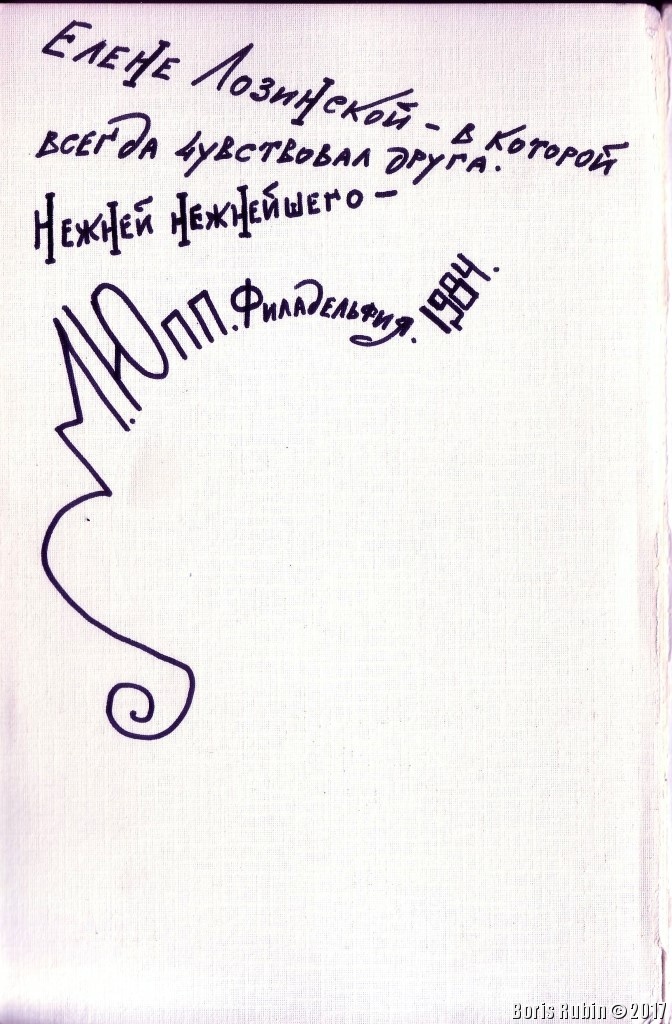 Елене Лозинской – в которой
всегда чувствовал друга.
Нежней нежнейшего –
М. Юпп. Филадельфия. 1984.
Boris Rubin © 2017